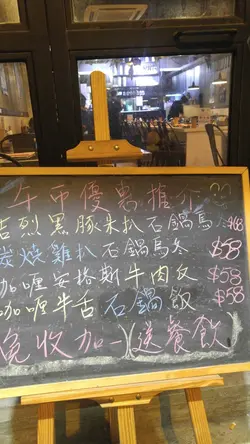 午市優惠推介
吉烈黑豚朱扒石鍋烏冬 $68
炭燒雞扒石鍋烏冬 $58
咖喱安格斯牛肉飯 $58
咖喱牛舌石鍋飯 $58
免收加一(送餐飲)